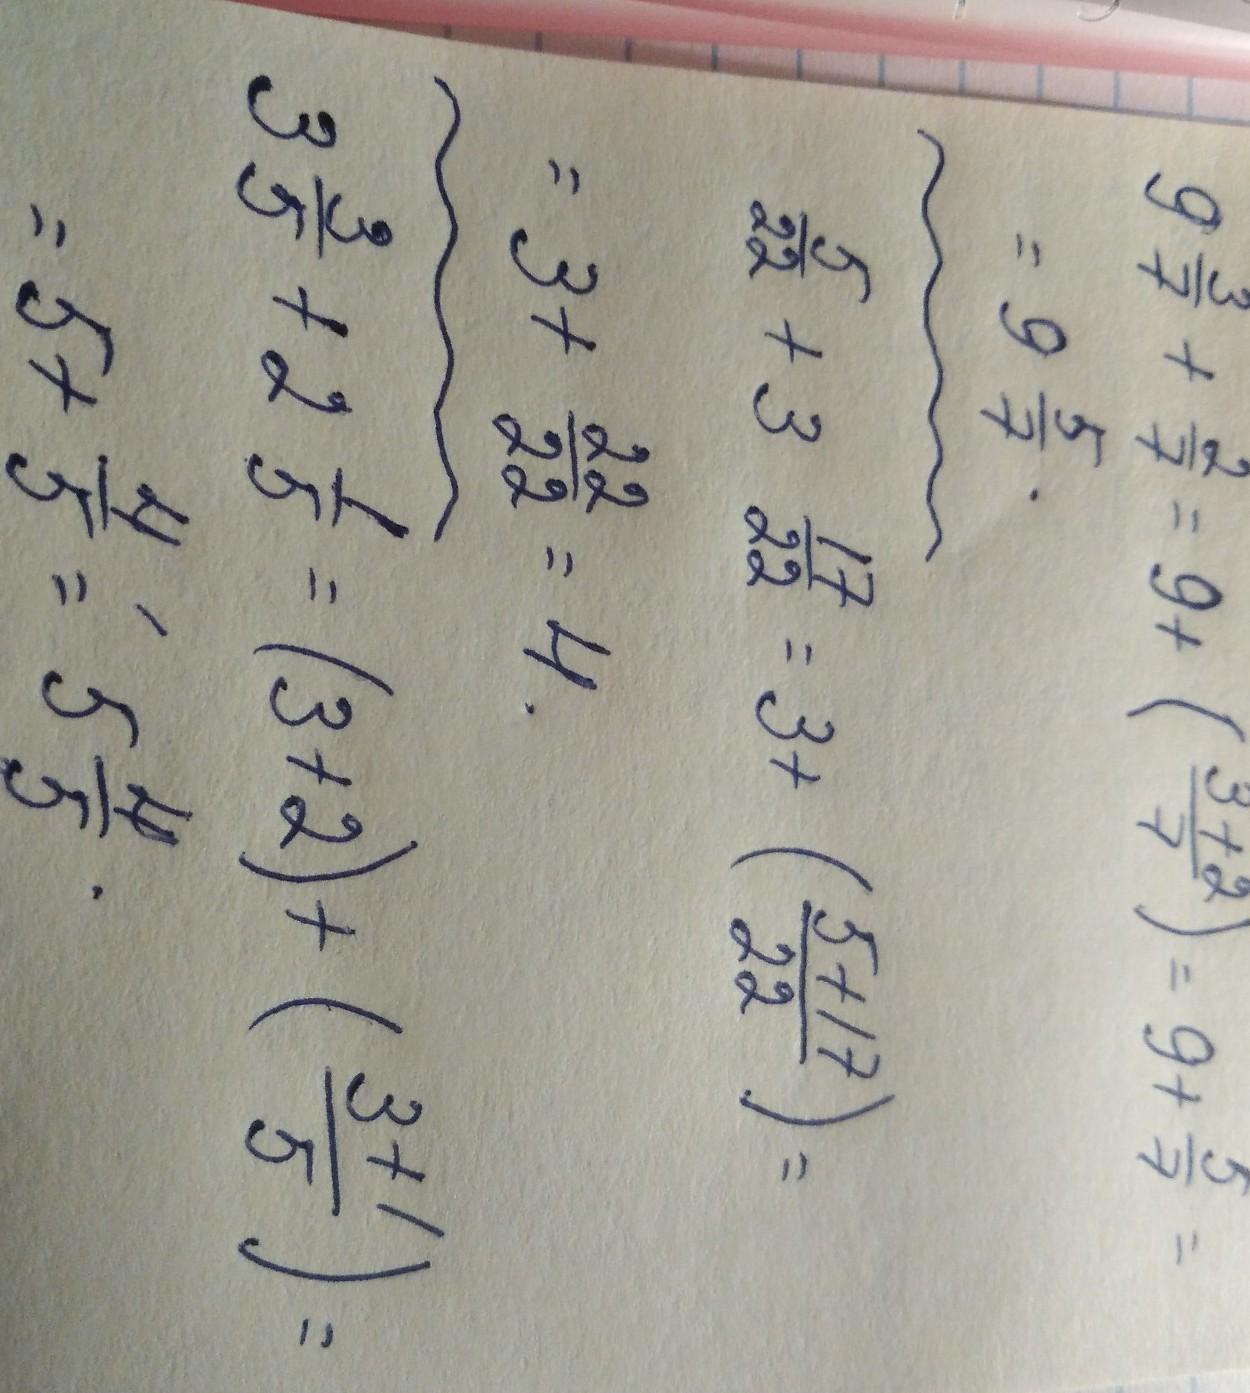 9 3/7 + 2/7 = 9+ (3+2/7) = 9+ 5/7 =
= 9 5/7.
5/22 + 3 17/22 = 3+ (5+17/22) =
= 3+ 22/22 = 4.
3 3/5 + 2 1/5 = (3+2) + (3+1/5) =
= 5+ 4/5 = 5 4/5.